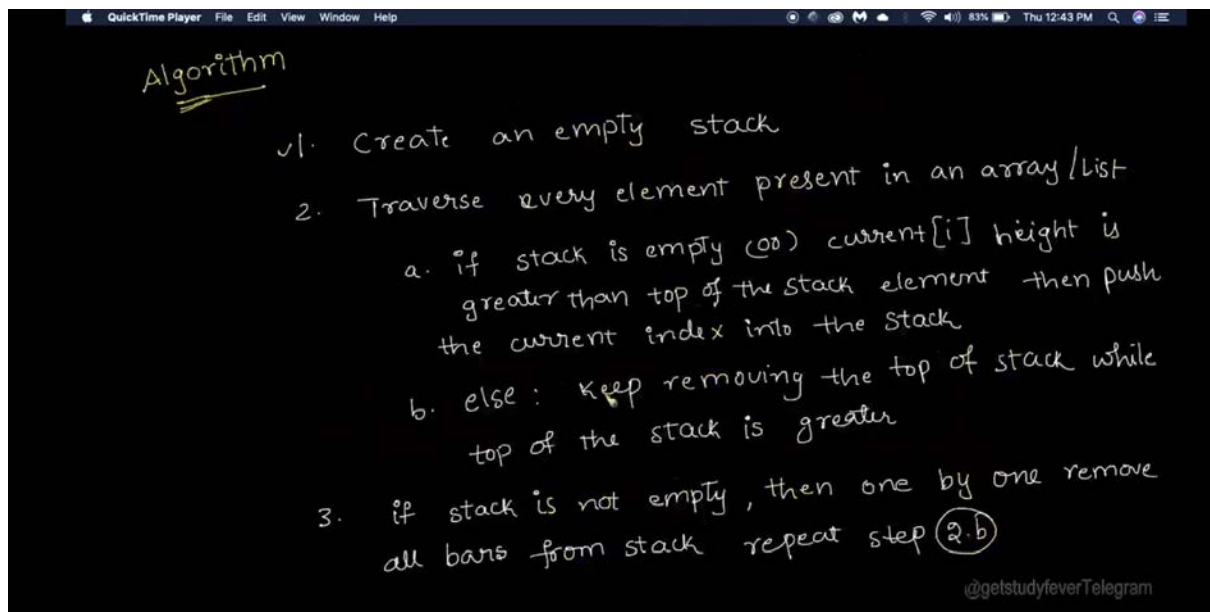 QuickTime Player File Edit View Window Help 83% Thu 12:43 PM
Algorithm
√1. Create an empty stack
2. Traverse every element present in an array/List
a. if stack is empty (or) current[i] height is
greater than top of the stack element then push
the current index into the stack
b. else : Keep removing the top of stack while
top of the stack is greater
3. if stack is not empty, then one by one remove
all bars from stack repeat step 2.b
@getstudyfeverTelegram